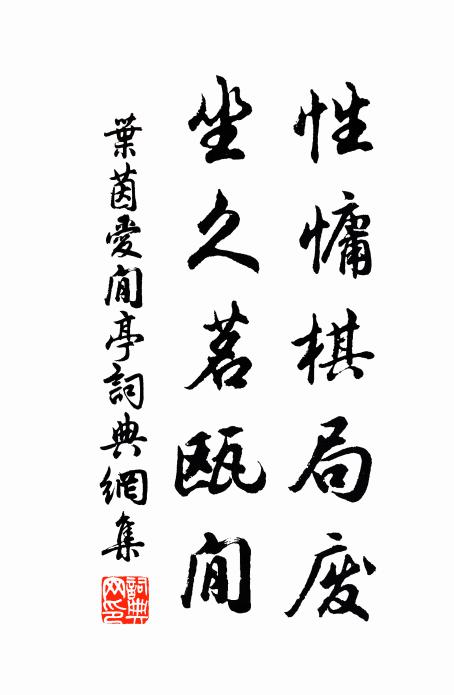 性慵棋局废
坐久茗瓯閒
葉茵愛閒亭詞典網集
詞典
网印